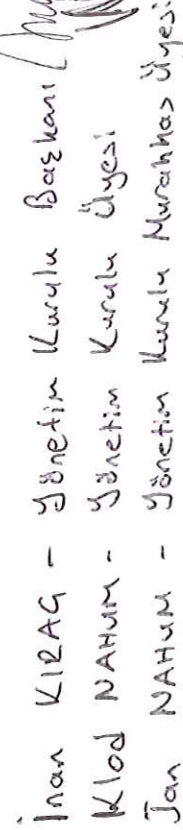 İnan KIRAÇ - Yönetim Kurulu Başkanı
Klod NAHUM - Yönetim Kurulu Üyesi
Jan NAHUM - Yönetim Kurulu Murahhas Üyesi